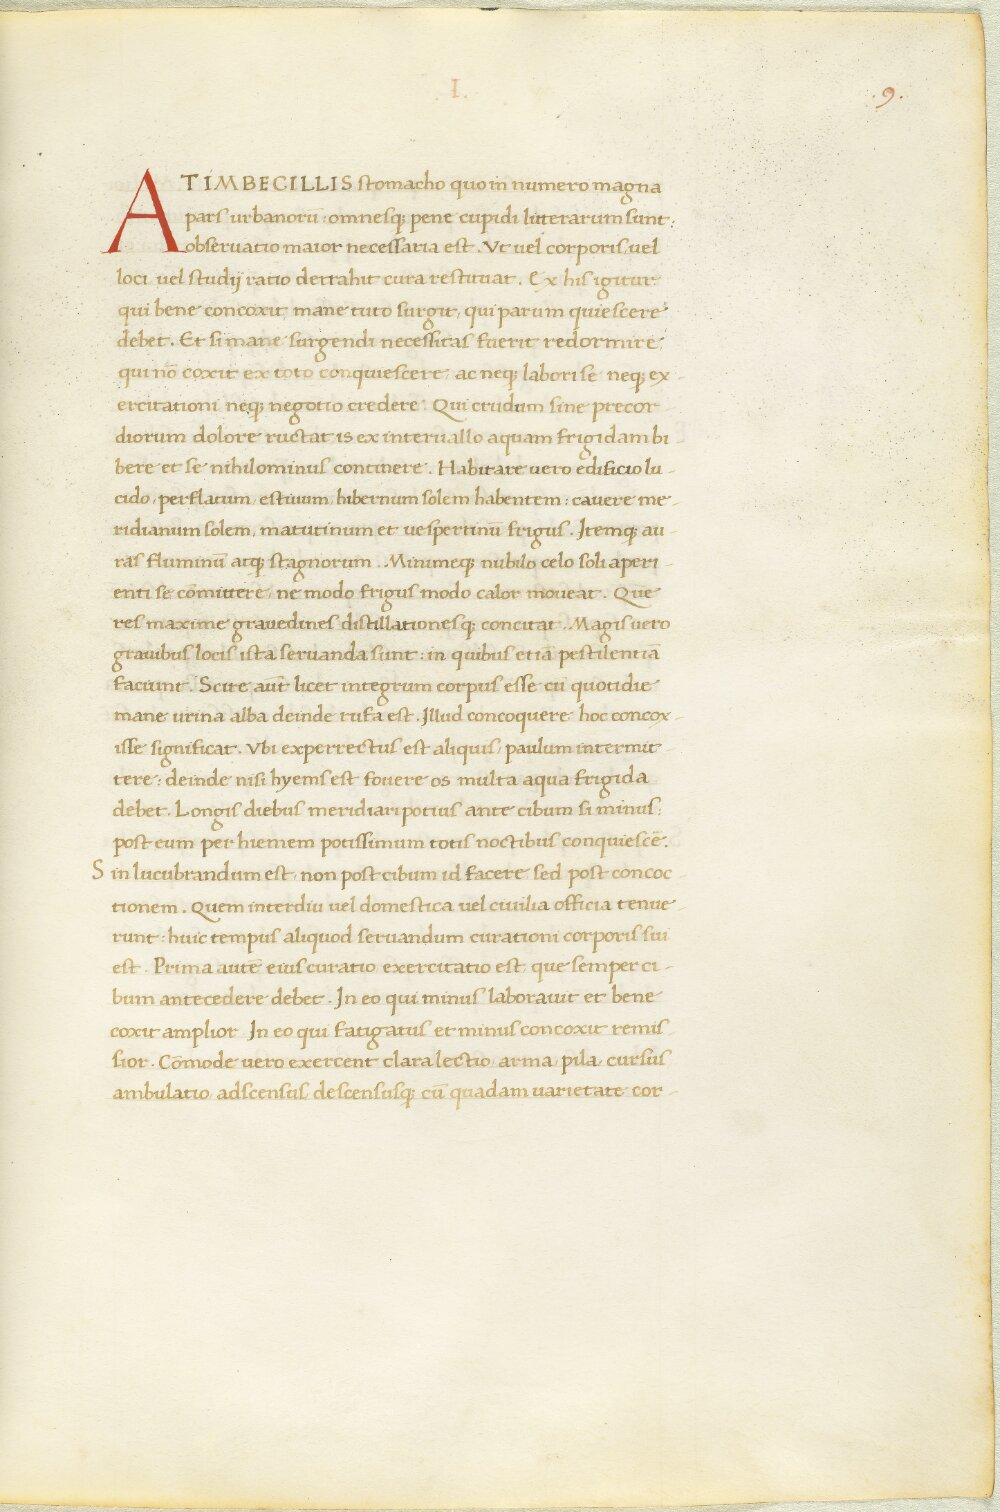 I.
.9.
AT IMBECILLIS stomacho quo in numero magna
pars urbanorū: omnesq; pene cupidi litterarum sunt:
observatio maior necessaria est. Ut vel corporis, vel
loci vel studij ratio detrahit cura restituat. Ex his igitur
qui bene concoxit mane tuto surgit, qui parum quiescere
debet. Et si mane surgendi necessitas fuerit redormire,
qui nō coxit ex toto conquiescere, ac neq; labori se neq; ex-
ercitationi neq; negotio credere. Qui crudum sine precor-
diorum dolore ructat is ex intervallo aquam frigidam bi
bere et se nihilominus continere. Habitare vero edificio lu-
cido, perflatum, estivum, hibernum solem habentem: cavere me-
ridianum solem, matutinum et vespertinū frigus. Itemq; au-
ras fluminū atq; stagnorum. Minimeq; nubilo celo soli aperi-
enti se cōmittere, ne modo frigus modo calor moveat. Que
res maxime gravedines distillationesq; concitat. Magis vero
gravibus locis ista servanda sunt: in quibus etiā pestilentiā
faciunt. Scire aut̄ licet integrum corpus esse cū quotidie
mane urina alba deinde rufa est. Illud concoquere hoc concox-
isse significat. Ubi experrectus est aliquis, paulum intermit-
tere: deinde nisi hyems est fovere os multa aqua frigida
debet. Longis diebus meridiari potius ante cibum si minus:
post eum per hiemem potissimum totis noctibus conquiescē.
Sin lucubrandum est, non post cibum id facere sed post concoc
tionem. Quem interdiu vel domestica vel civilia officia tenue-
runt: huic tempus aliquod servandum curationi corporis sui
est. Prima autē eius curatio exercitatio est, que semper ci-
bum antecedere debet. In eo qui minus laboravit et bene
coxit amplior. In eo qui fatigatus et minus concoxit remis-
sior. Cōmode vero exercent clara lectio, arma, pila, cursus
ambulatio, adscensus, descensusq; cū quadam varietate cor-